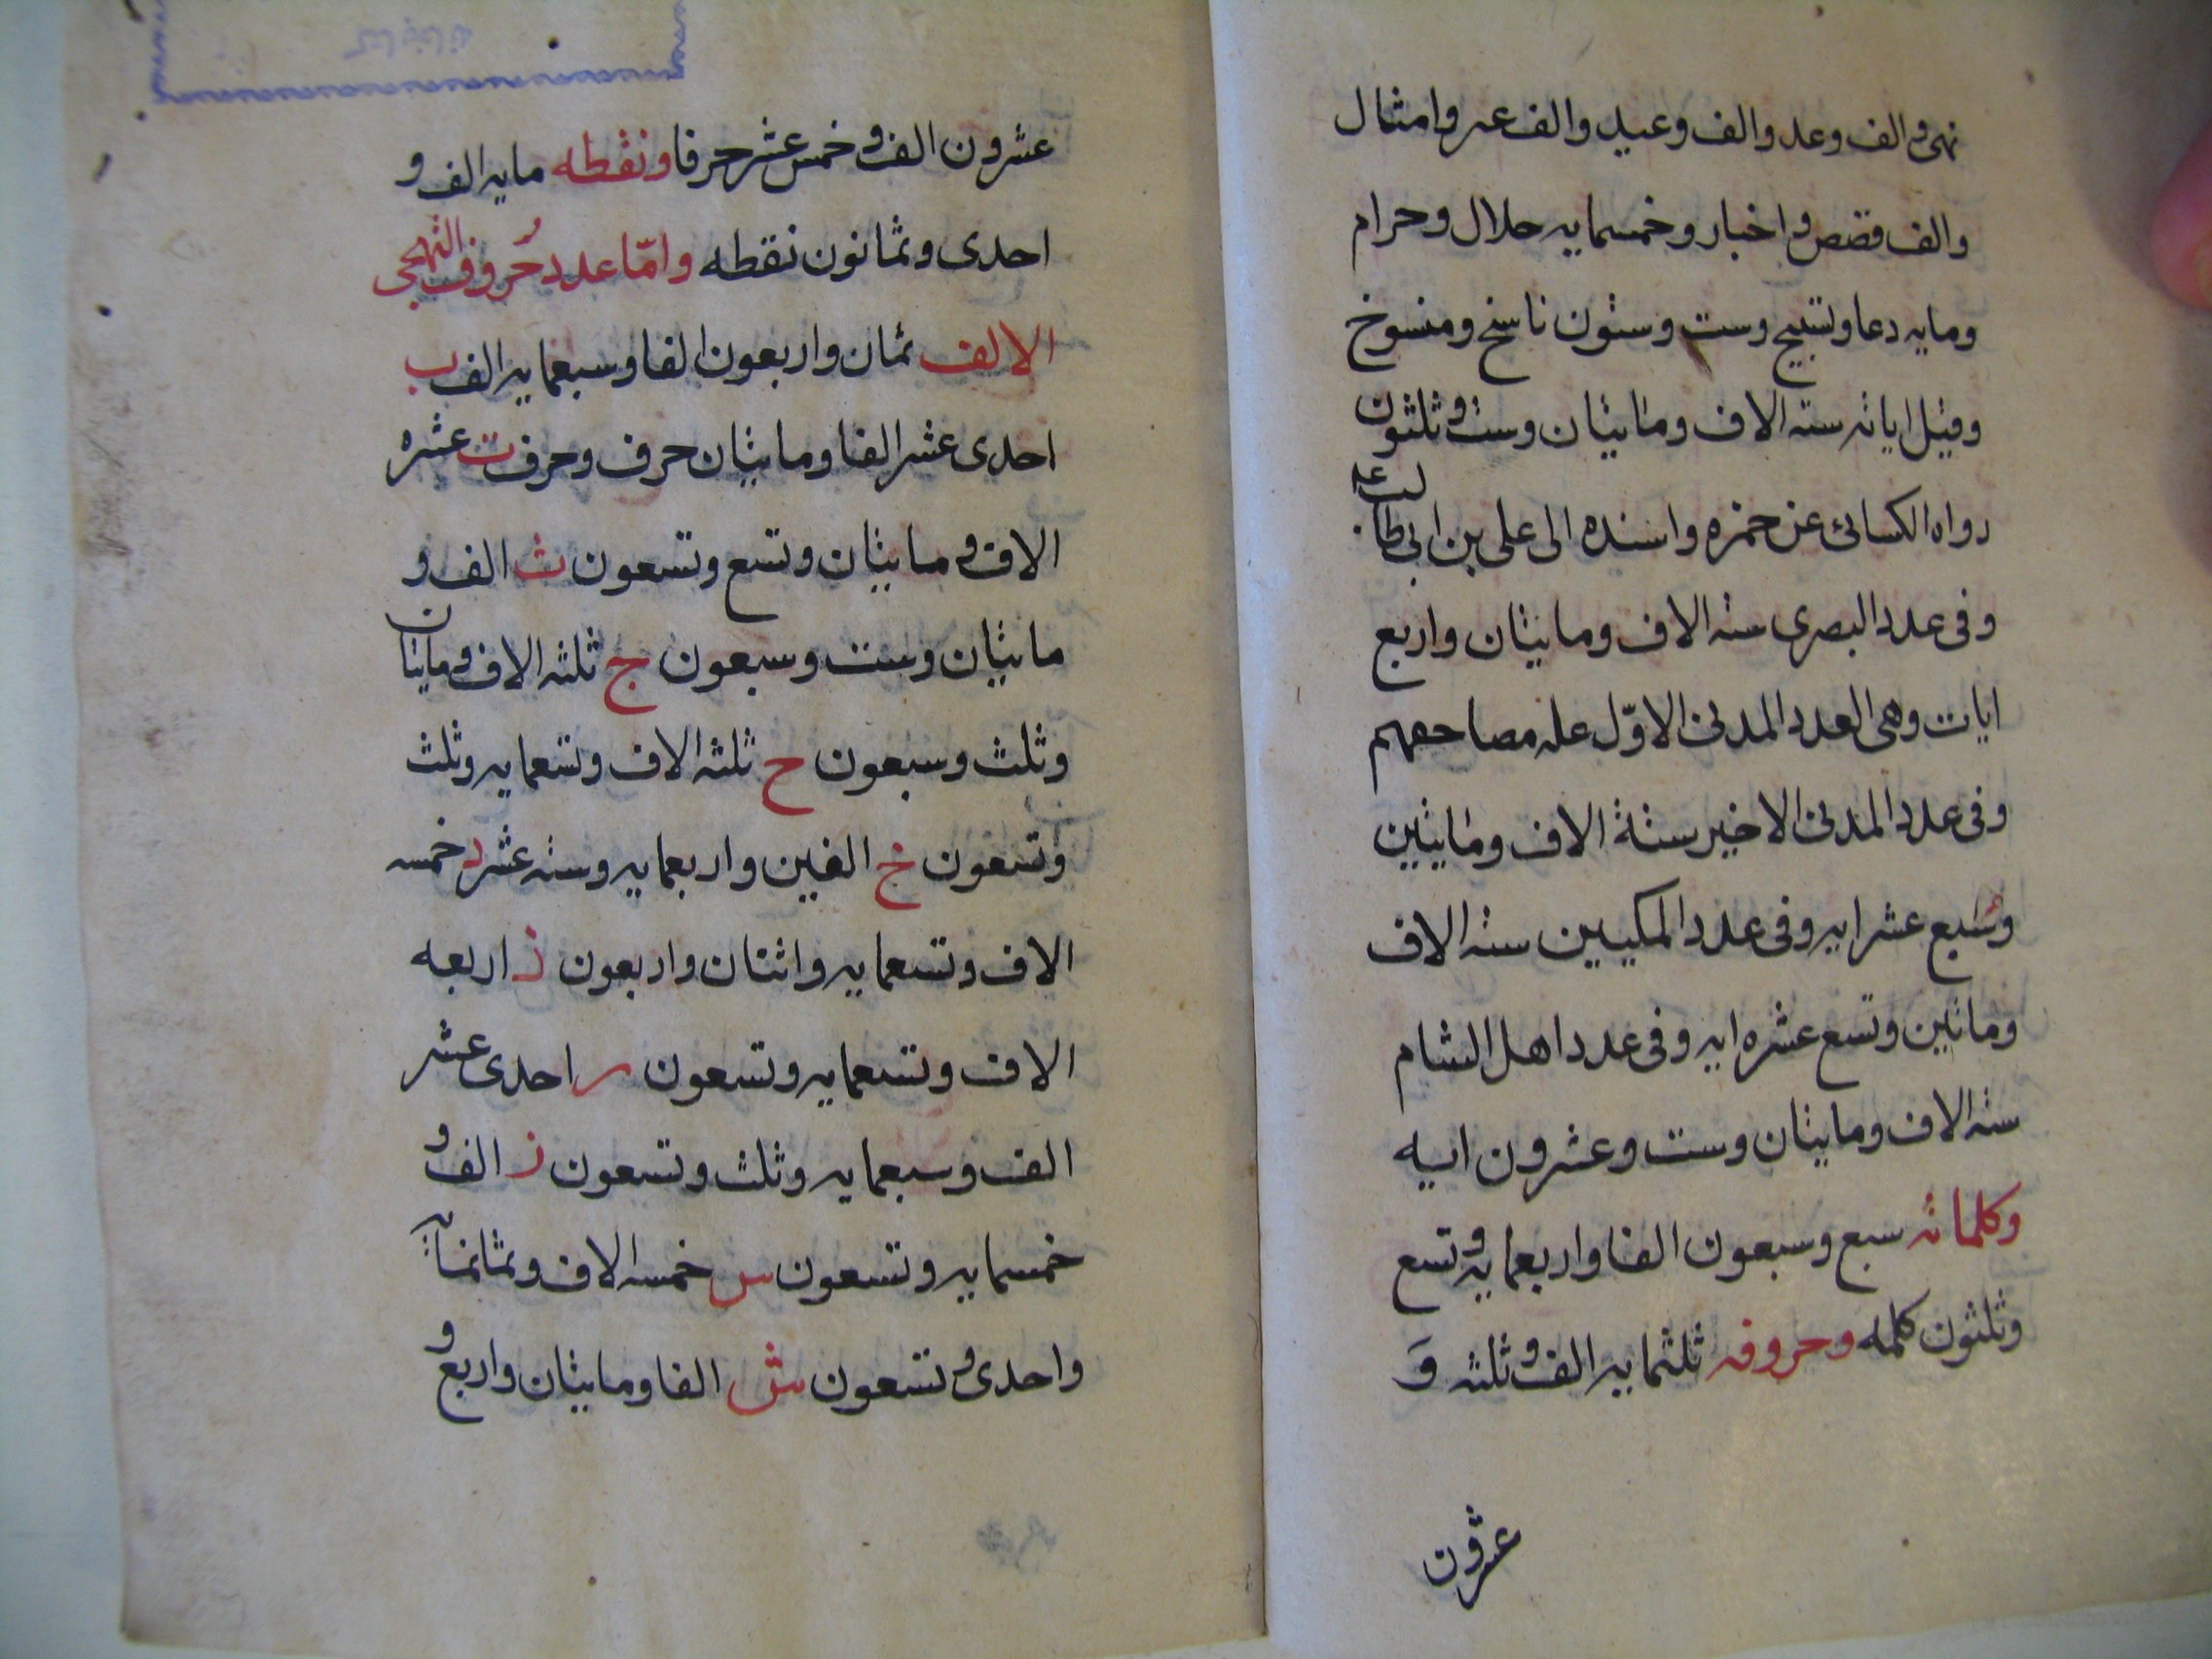 نهى و الف وعد والف وعيد والف عبر وامثال
والف قصص و اخبار وخمسمايه حلال وحرام
ومايه دعا وتسبيح وست وستون ناسخ ومنسوخ
وقيل اياته ستة الاف ومائيتان وست و ثلثون
رواه الكسائى عن حمزه واسنده الى على بن ابى طالب علم
وفى عدد البصرى سته الاف ومائيتان واربع
ايات وهى العدد المدنى الاوّل عله مصاحفهم
وفى عدد المدنى الاخير ستة الاف ومايتين
وسبع عشر ايه وفى عدد المكيين سته الاف
ومائتين وتسع عشره ايه وفى عدد اهل الشام
سته الاف ومايتان وست وعشرون اييه
وكلماته سبع وسبعون الفا واربعمايه و تسع
وثلثون كلمه وحروفه ثلثمايه الف و ثلثه وَ
عشرون
عشرون الف و خمس عشر حرفا ونقطه مايه الف و
احدى وثمانون نقطه وامّا عدد حُروف التهجى
الالف ثمان واربعون الفا وسبعمايه الف ب
احدى عشر الفا ومايتان حرف وحرف ت عشره
الاف و مايتان وتسع وتسعون ث الف و
مايتان وست وسبعون ج ثلثه الاف و مايتان
وثلث وسبعون ح ثلثه الاف وتسعمايه وثلث
وتسعون خ الفين واربعمايه وسته عشر د خمسه
الاف وتسعمايه واثنان واربعون ذ اربعه
الاف وتسعمايه وتسعون ر احدى عشر
الف وسبعمايه وثلث وتسعون ز الف و
خمسمايه وتسعون س خمسه الاف وثمانمايه
واحدى و تسعون ش الفا ومايتان واربع و